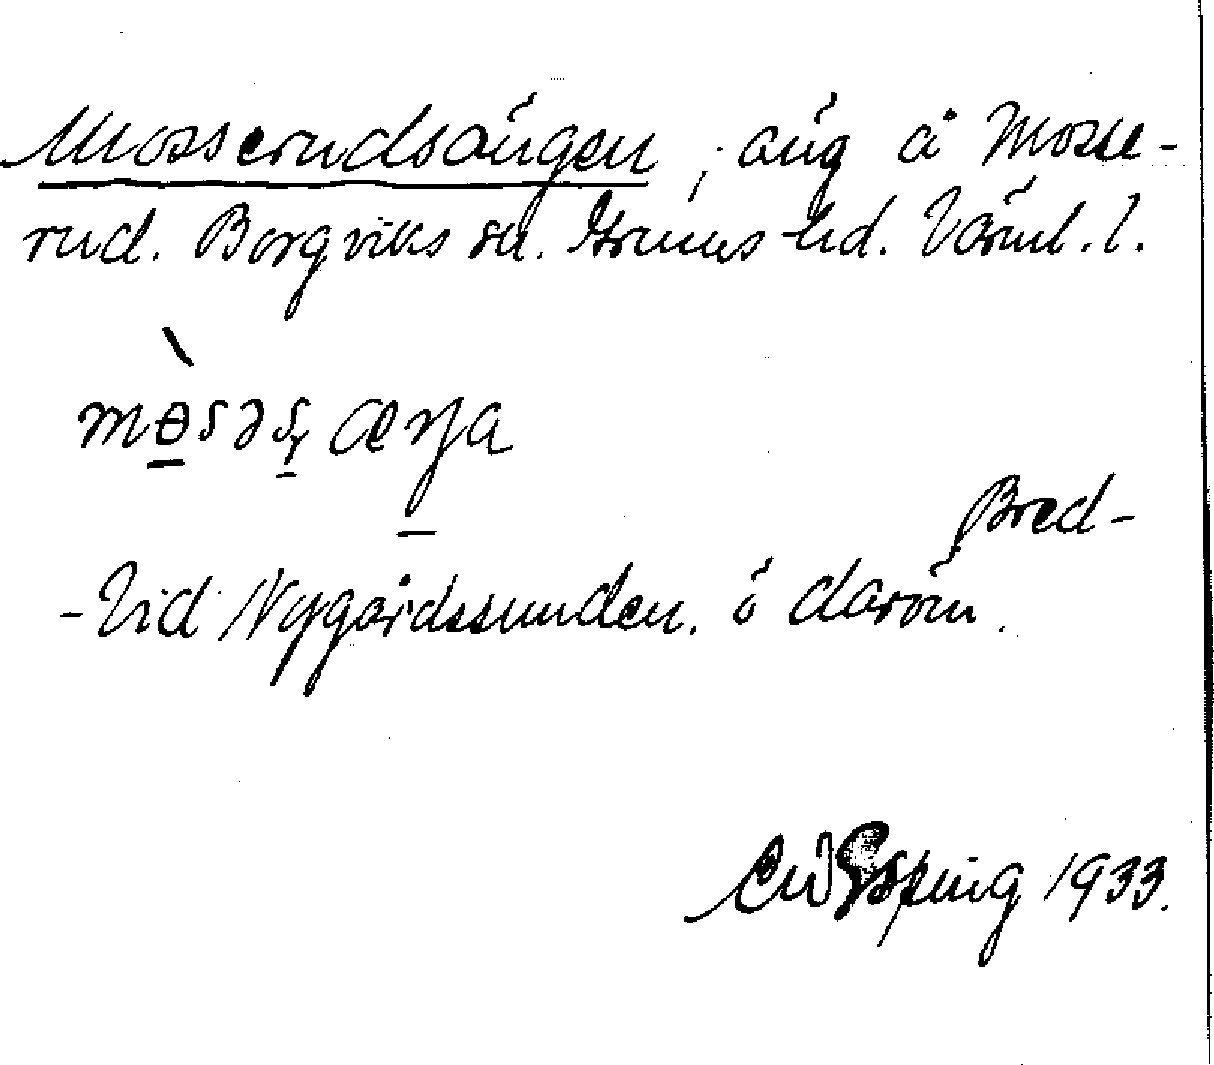 Mosserudsängen, äng å Mosse-
rud. Borgviks sn. Grums hd. Värml. l.
mɵ̀səsæŋa
Bred-
-vid Nygårdssunden. ö därom.
CW Esping 1933.